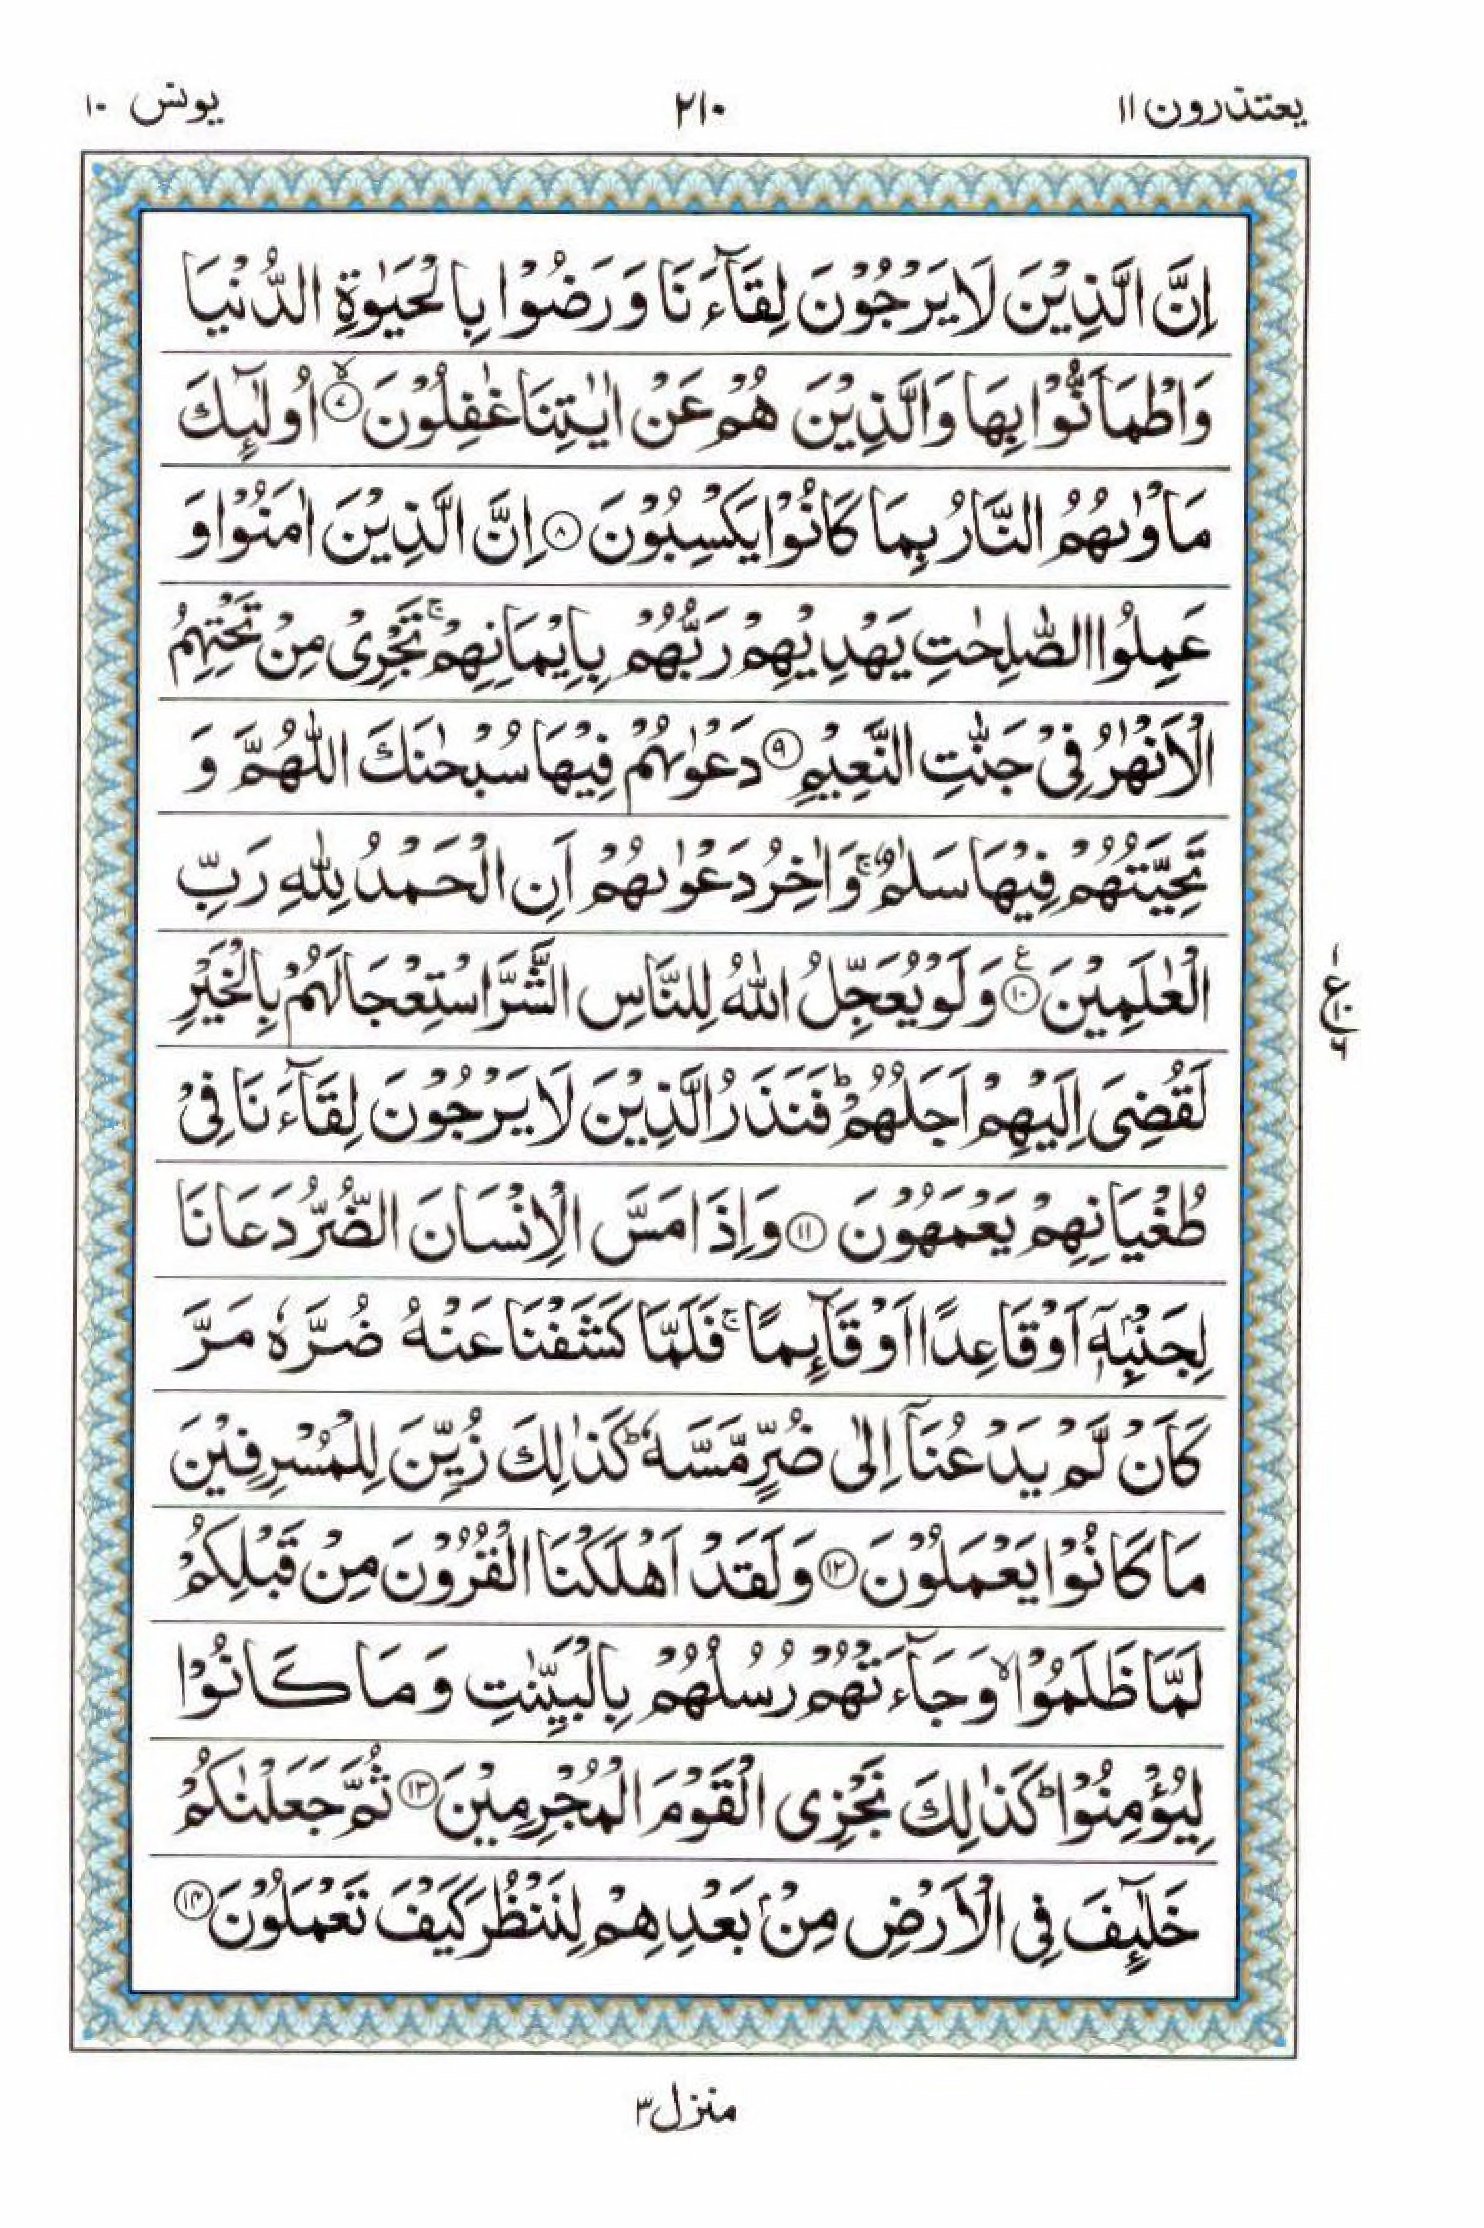 يعتذرون ١١
٢١٠
يونس ١٠
اِنَّ الَّذِيْنَ لَا يَرْجُوْنَ لِقَآءَنَا وَرَضُوْا بِالْحَيٰوةِ الدُّنْيَا
وَاطْمَاَنُّوْا بِهَا وَالَّذِيْنَ هُمْ عَنْ اٰيٰتِنَا غٰفِلُوْنَ ۙ‏﴿۷﴾ اُولٰٓئِكَ
مَاْوٰىهُمُ النَّارُ بِمَا كَانُوْا يَكْسِبُوْنَ ﴿۸﴾ اِنَّ الَّذِيْنَ اٰمَنُوْا وَ
عَمِلُوا الصّٰلِحٰتِ يَهْدِيْهِمْ رَبُّهُمْ بِاِيْمَانِهِمْ ۚ تَجْرِيْ مِنْ تَحْتِهِمُ
الْاَنْهٰرُ فِيْ جَنّٰتِ النَّعِيْمِ ﴿۹﴾ دَعْوٰىهُمْ فِيْهَا سُبْحٰنَكَ اللّٰهُمَّ وَ
تَحِيَّتُهُمْ فِيْهَا سَلٰمٌ ۚ وَاٰخِرُ دَعْوٰىهُمْ اَنِ الْحَمْدُ لِلّٰهِ رَبِّ
الْعٰلَمِيْنَ ﴿۱۰﴾ ع وَلَوْ يُعَجِّلُ اللّٰهُ لِلنَّاسِ الشَّرَّ اسْتِعْجَالَهُمْ بِالْخَيْرِ
١ ع ١٠ ٦
لَقُضِيَ اِلَيْهِمْ اَجَلُهُمْ ؕ فَنَذَرُ الَّذِيْنَ لَا يَرْجُوْنَ لِقَآءَنَا فِيْ
طُغْيَانِهِمْ يَعْمَهُوْنَ ﴿۱۱﴾ وَاِذَا مَسَّ الْاِنْسَانَ الضُّرُّ دَعَانَا
لِجَنْۢبِهٖۤ اَوْ قَاعِدًا اَوْ قَآئِمًا ۚ فَلَمَّا كَشَفْنَا عَنْهُ ضُرَّهٗ مَرَّ
كَاَنْ لَّمْ يَدْعُنَاۤ اِلٰى ضُرٍّ مَّسَّهٗ ؕ كَذٰلِكَ زُيِّنَ لِلْمُسْرِفِيْنَ
مَا كَانُوْا يَعْمَلُوْنَ ﴿۱۲﴾ وَلَقَدْ اَهْلَكْنَا الْقُرُوْنَ مِنْ قَبْلِكُمْ
لَمَّا ظَلَمُوْا ۙ وَجَآءَتْهُمْ رُسُلُهُمْ بِالْبَيِّنٰتِ وَمَا كَانُوْا
لِيُؤْمِنُوْا ؕ كَذٰلِكَ نَجْزِي الْقَوْمَ الْمُجْرِمِيْنَ ﴿۱۳﴾ ثُمَّ جَعَلْنٰكُمْ
خَلٰٓئِفَ فِي الْاَرْضِ مِنْۢ بَعْدِهِمْ لِنَنْظُرَ كَيْفَ تَعْمَلُوْنَ ﴿۱۴﴾
منزل ٣